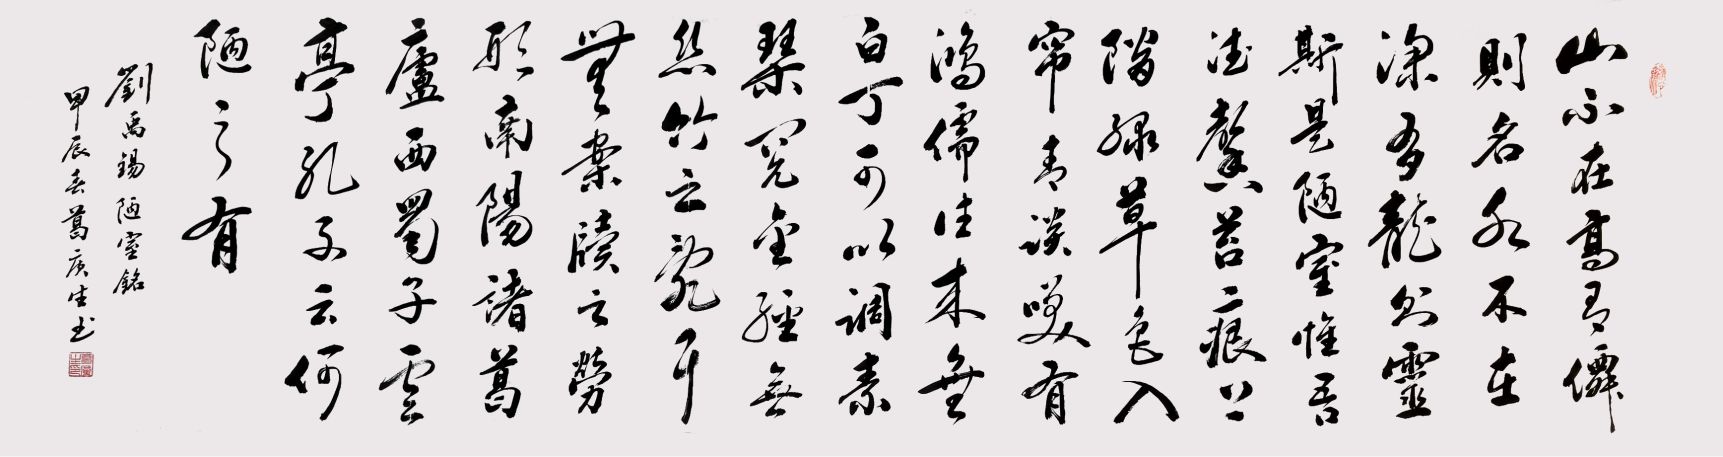 山不在高有僊
則名水不在
深有龍則靈
斯是陋室惟吾
德馨苔痕上
階綠草色入
帘青談笑有
鴻儒往來無
白丁可以調素
琴閱金經無
絲竹之亂耳
無案牘之勞
形南陽諸葛
廬西蜀子雲
亭孔子云何
陋之有
劉禹錫陋室銘
甲辰春葛庚生书